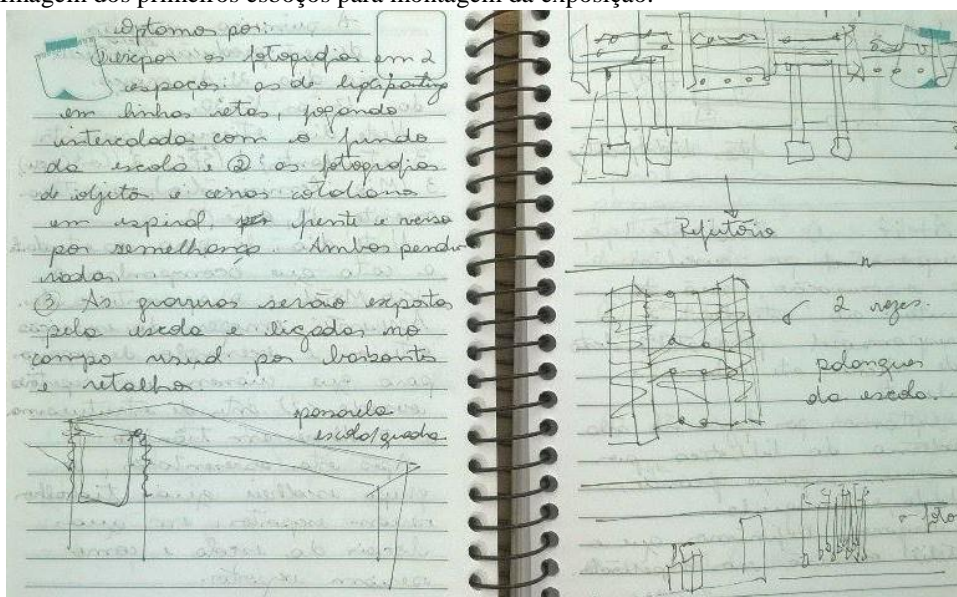 Imagem dos primeiros esboços para montagem da exposição.
Optamos por:
expor as fotografias em 2
espaços: as de lightpainting
em linhas retas, jogando
intercaladas com o fundo
da escola e ② as fotografias
de objetos e cenas cotidianas
em espiral, frente e verso
por semelhança. Ambas pendu
radas.
③ As gravuras serão expostas
pela escola e ligadas no
campo visual por barbante
e retalhos
passarela
escola/quadra
Refeitório
2 vezes.
palanques
da escola.
foto